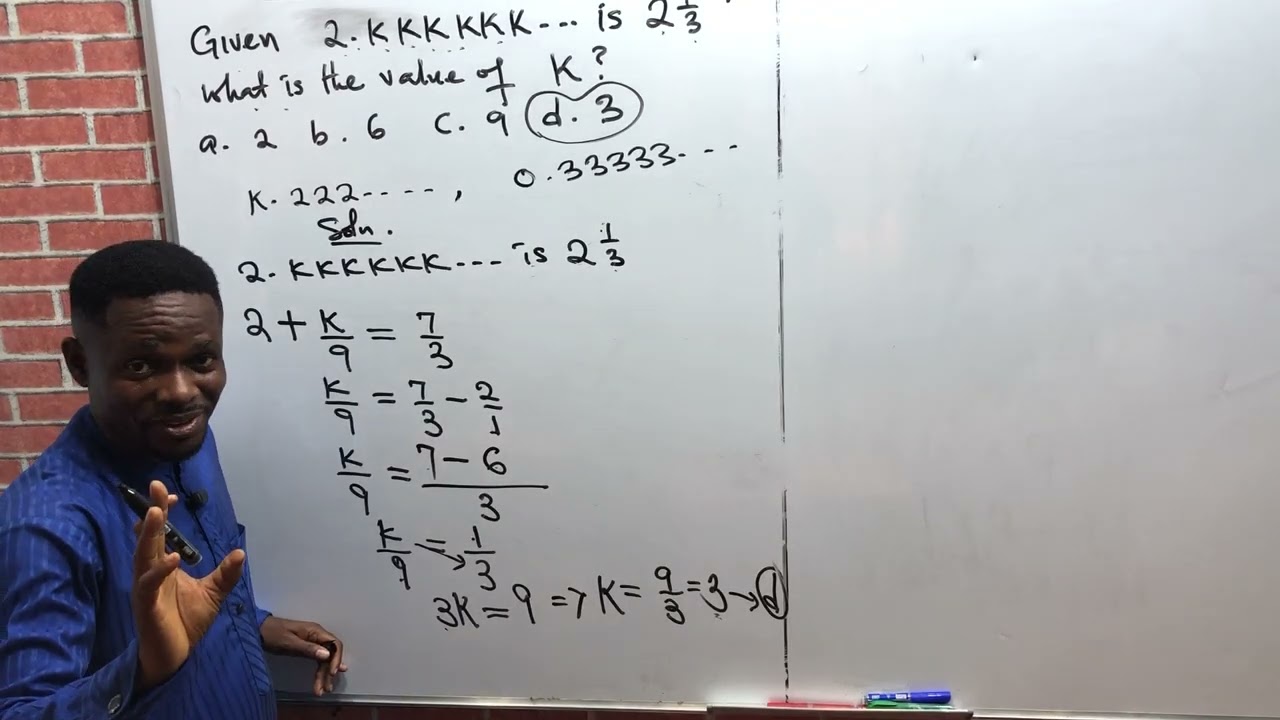 Given 2.KKKKKK... is 2 1/3
what is the value of K?
a. 2 b. 6 c. 9 d. 3
K.222...., 0.33333...
Soln.
2.KKKKKK... is 2 1/3
2 + K/9 = 7/3
K/9 = 7/3 - 2/1
K/9 = (7 - 6)/3
K/9 = 1/3
3K = 9 => K = 9/3 = 3 → d